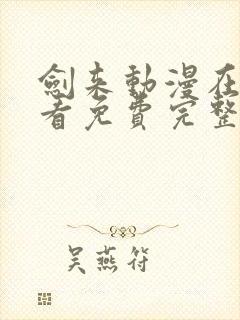 劍来動漫在
看免費完整
吴燕符